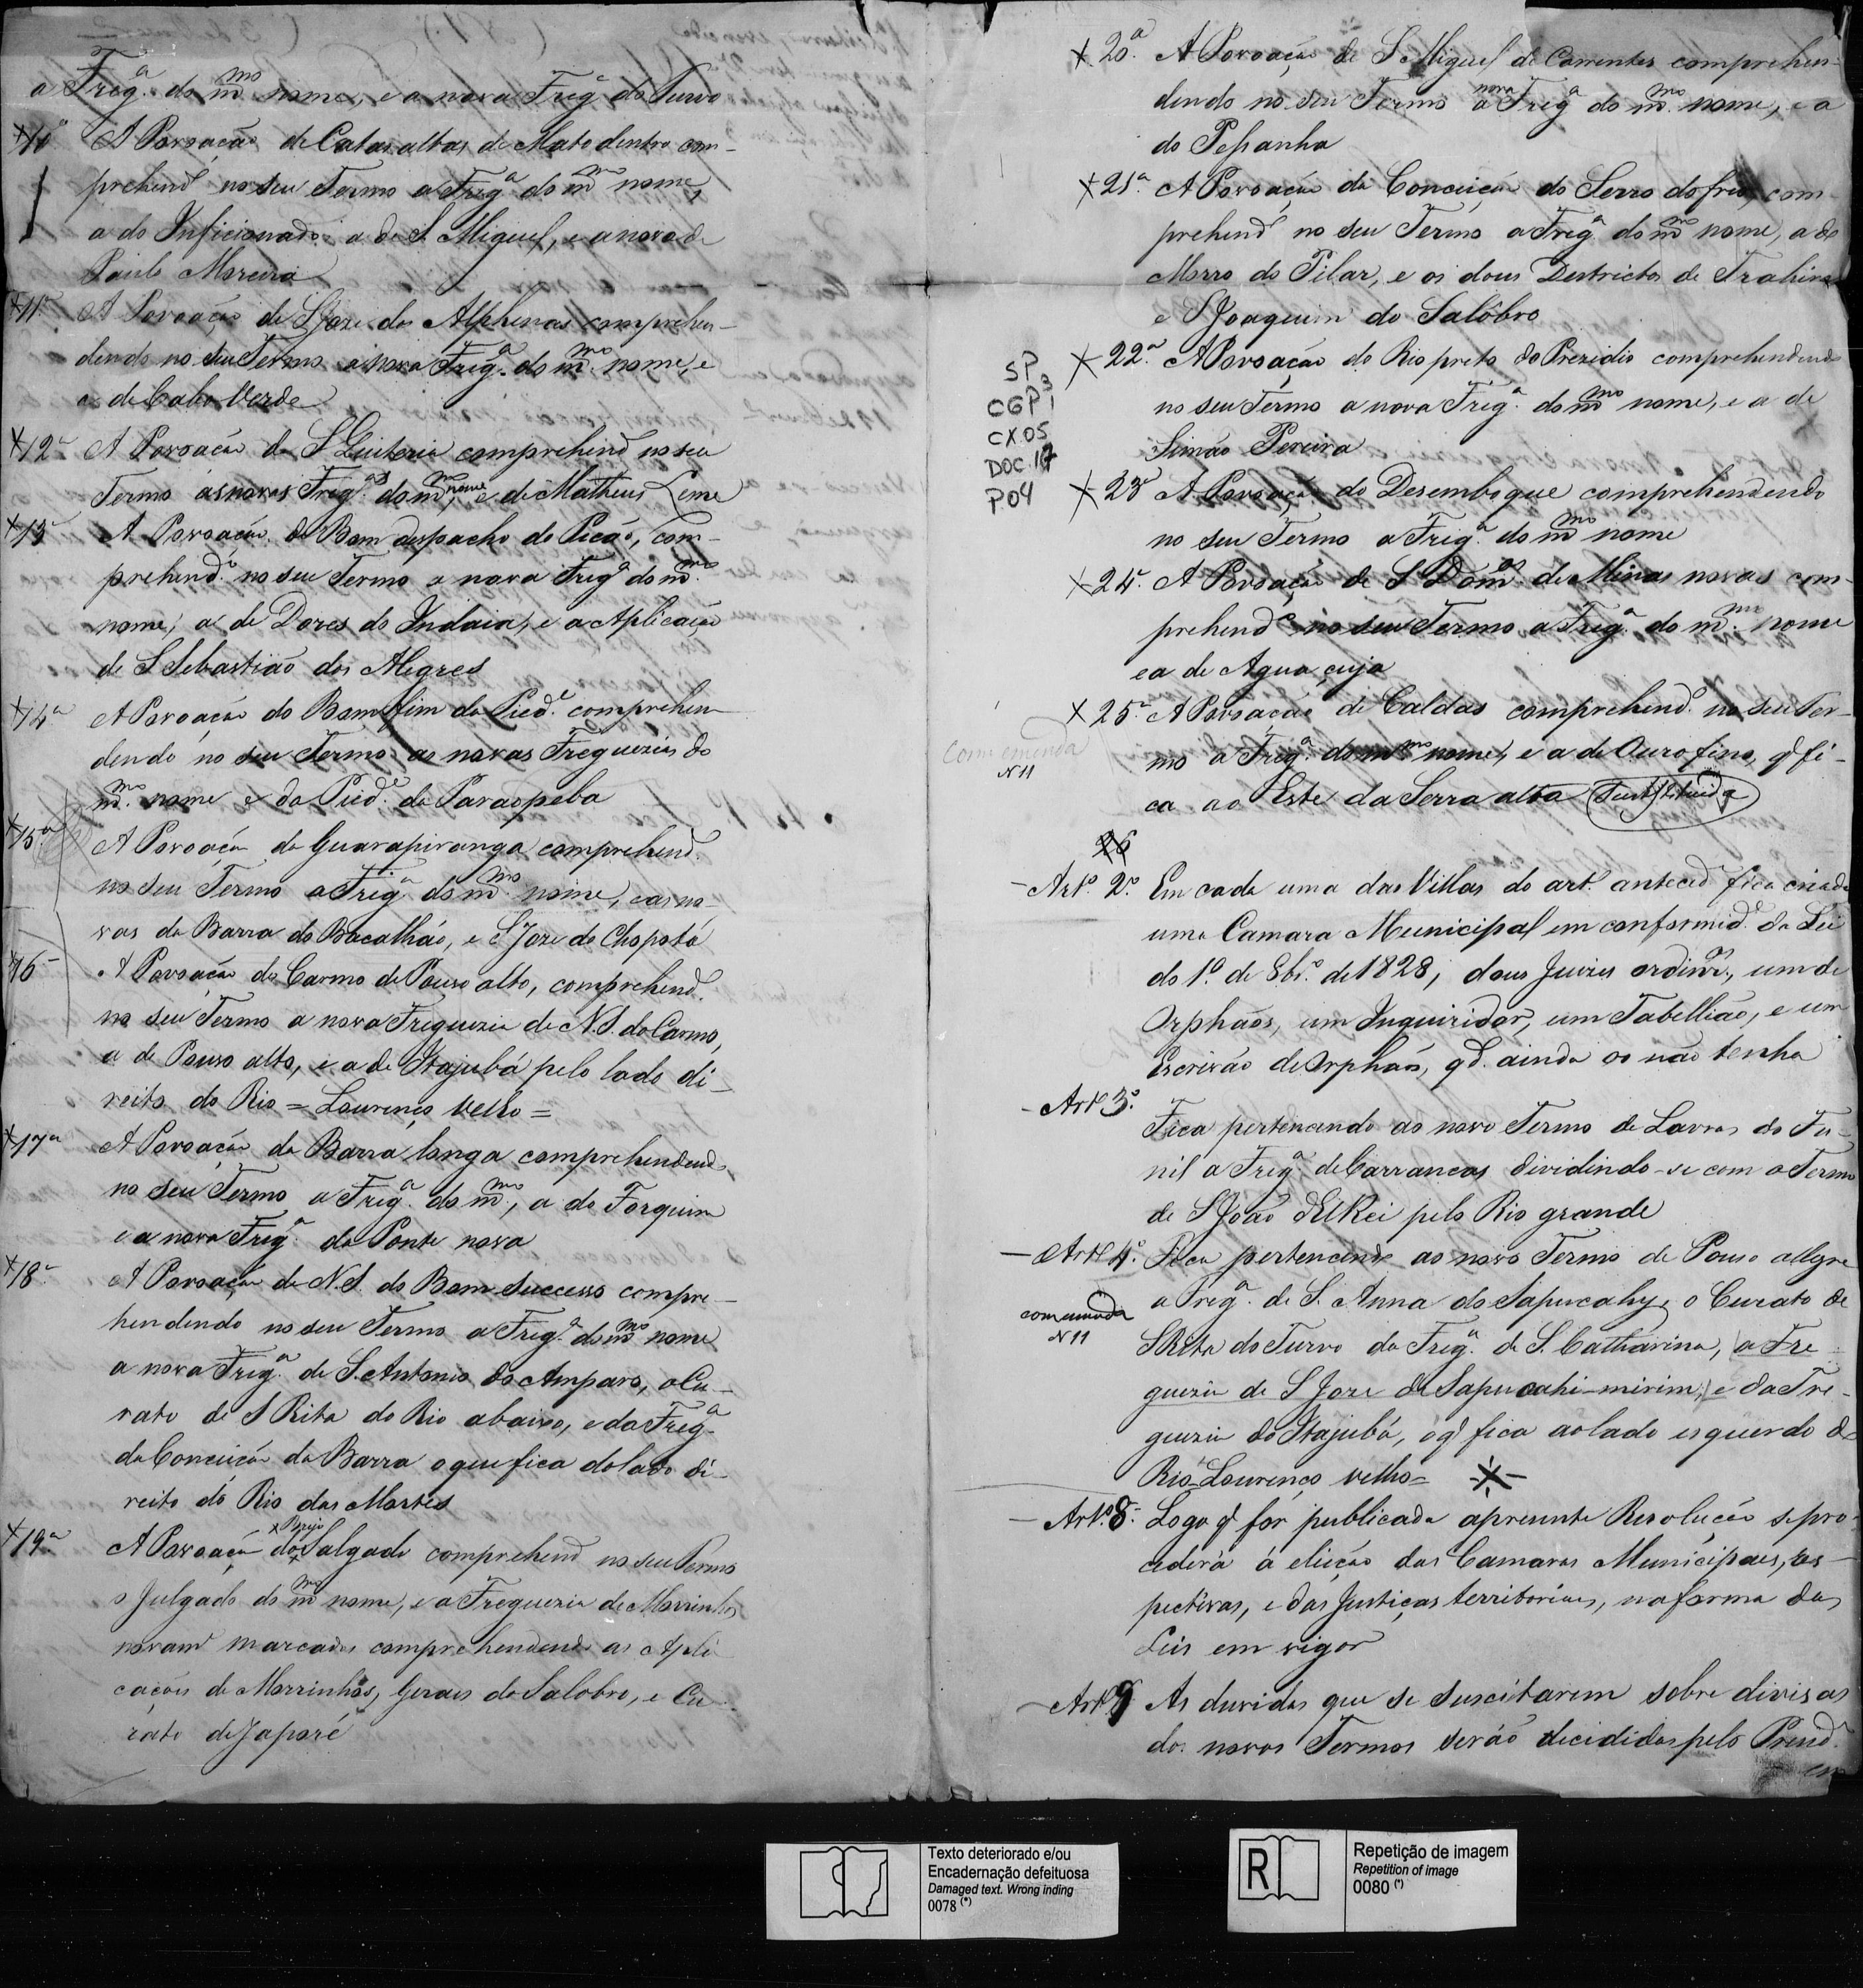 a Freg.ª do m.mo nome, e a nova Freg.ª do Turvo
X 10ª A Povoação de Catas altas de Mato dentro com-
prehend.º no seu Termo a Freg.ª do m.mo nome,
a do Inficionado, a de S. Miguel, e a nova de
Paulo Moreira
X 11ª A Povoação de S Joze dos Alphenas comprehen-
dendo no seu Termo a nova Freg.ª do m.mo nome, e
a de Cabo Verde
X 12ª A Povoação de S Quiteria comprehend.º no seu
Termo as novas Freg.as do m.mo nome, e de Matheus Leme
X 13ª A Povoação do Bom despacho do Picão, com-
prehend.º no seu Termo a nova Freg.ª do m.mo
nome, a de Dores do Indaiá, e a Aplicação
de S Sebastião dos Alegres
X 14ª A Povoação do Bom fim da Pied.e comprehen-
dendo no seu Termo as novas Freguezias do
m.mo nome e da Pied.e da Paraopeba
X 15ª A Povoação de Guarapiranga comprehend.º
no seu Termo a Freg.ª do m.mo nome, e as no-
vas da Barra do Bacalháo, e S Joze do Chopotó
X 16ª A Povoação do Carmo de Pouso alto, comprehend.º
no seu Termo a nova Freguezia de N. S. do Carmo,
a de Pouso alto, e a de Itajubá pelo lado di-
reito do Rio = Lourenço Velho =
X 17ª A Povoação da Barra longa comprehendendo
no seu Termo a Freg.ª do m.mo, a do Forquim
e a nova Freg.ª da Ponte nova
X 18ª A Povoação de N. S. do Bom Successo compre-
hendendo no seu Termo a Freg.ª do m.mo nome
a nova Freg.ª de S. Antonio do Amparo, o Cu-
rato de S Rita do Rio abaixo, e da Freg.ª
da Conceição da Barra o que fica do lado di-
reito do Rio das Mortes
X 19ª A Povoação do Salgado comprehend.º no seu Termo
x Brejo
o Julgado do m.mo nome, e a Freguezia de Morrinhos
novam.e marcados comprehendendo as Apli-
cações de Morrinhos, Gerais do Salobro, e Cu-
rato de Japoré
X 20ª A Povoação de S Miguel de Correntes comprehen-
dendo no seu Termo a nova Freg.ª do m.mo nome, e a
do Pessanha
X 21ª A Povoação da Conceição do Serro do frio, com-
prehend.º no seu Termo a Freg.ª do m.mo nome, a do
Morro do Pilar, e os dous Destrictos de Trahiras
e S Joaquim do Salôbro
X 22ª A Povoação do Rio preto do Prezidio comprehendendo
no seu Termo a nova Freg.ª do m.mo nome, e a de
Simão Pereira
SP
CGP 3
1
CX 05
DOC. 17
P04
X 23ª A Povoação do Desemboque comprehendendo
no seu Termo a Freg.ª do m.mo nome
X 24ª A Povoação de S Dom.os de Minas novas com-
prehend.º no seu Termo a Freg.ª do m.mo nome
e a de Agua çuja
X 25ª A Povoação de Caldas comprehend.º no seu Ter-
Com emenda
N 11
mo a Freg.ª do m.mo nome, e a de Ouro fino, q fi-
ca ao Este da Serra alta
26
- Art.º 2.º Em cada uma das Villas do art. anteced.e fica criada
uma Camara Municipal em conformid.e da Lei
do 1.º de 8br.º de 1828, dous Juizes ordinr.os, um de
Orphãos, um Inquiridor, um Tabellião, e um
Escrivão de Orphãos, qd. ainda os não tenha
- Art.º 3.º
Fica pertencendo ao novo Termo de Lavras do Fu-
nil a Freg.ª de Carrancas dividindo-se com o Termo
de S João d'ElRei pelo Rio grande
- Art.º 4.º Fica pertencendo ao novo Termo de Pouso alegre
a Freg.ª de S. Anna do Sapucahy, o Curato de
com emenda
N 11
S Rita do Turvo da Freg.ª de S. Catharina, a Fre-
guezia de S Joze de Sapucahi-mirim, e da Fre-
guezia do Itajubá, o q fica ao lado esquerdo do
Rio = Lourenço velho =
- Art.º 8.º Logo q for publicada a presente Resolução se pro-
cederá á eleição das Camaras Municipaes, res-
pectivas, e das Justiças territoriaes, na forma das
Leis em vigor
- Art.º 9 As duvidas que se suscitarem sobre divisas
dos novos Termos serão decididas pelo Prezid.e
em
Texto deteriorado e/ou
Encadernação defeituosa
Damaged text. Wrong inding
0078 (*)
R
Repetição de imagem
Repetition of image
0080 (*)